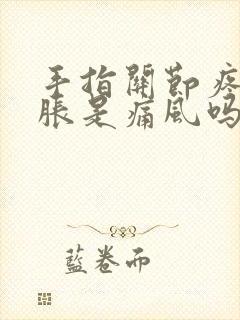 手指關節疼
脹是痛風嗎
藍卷而